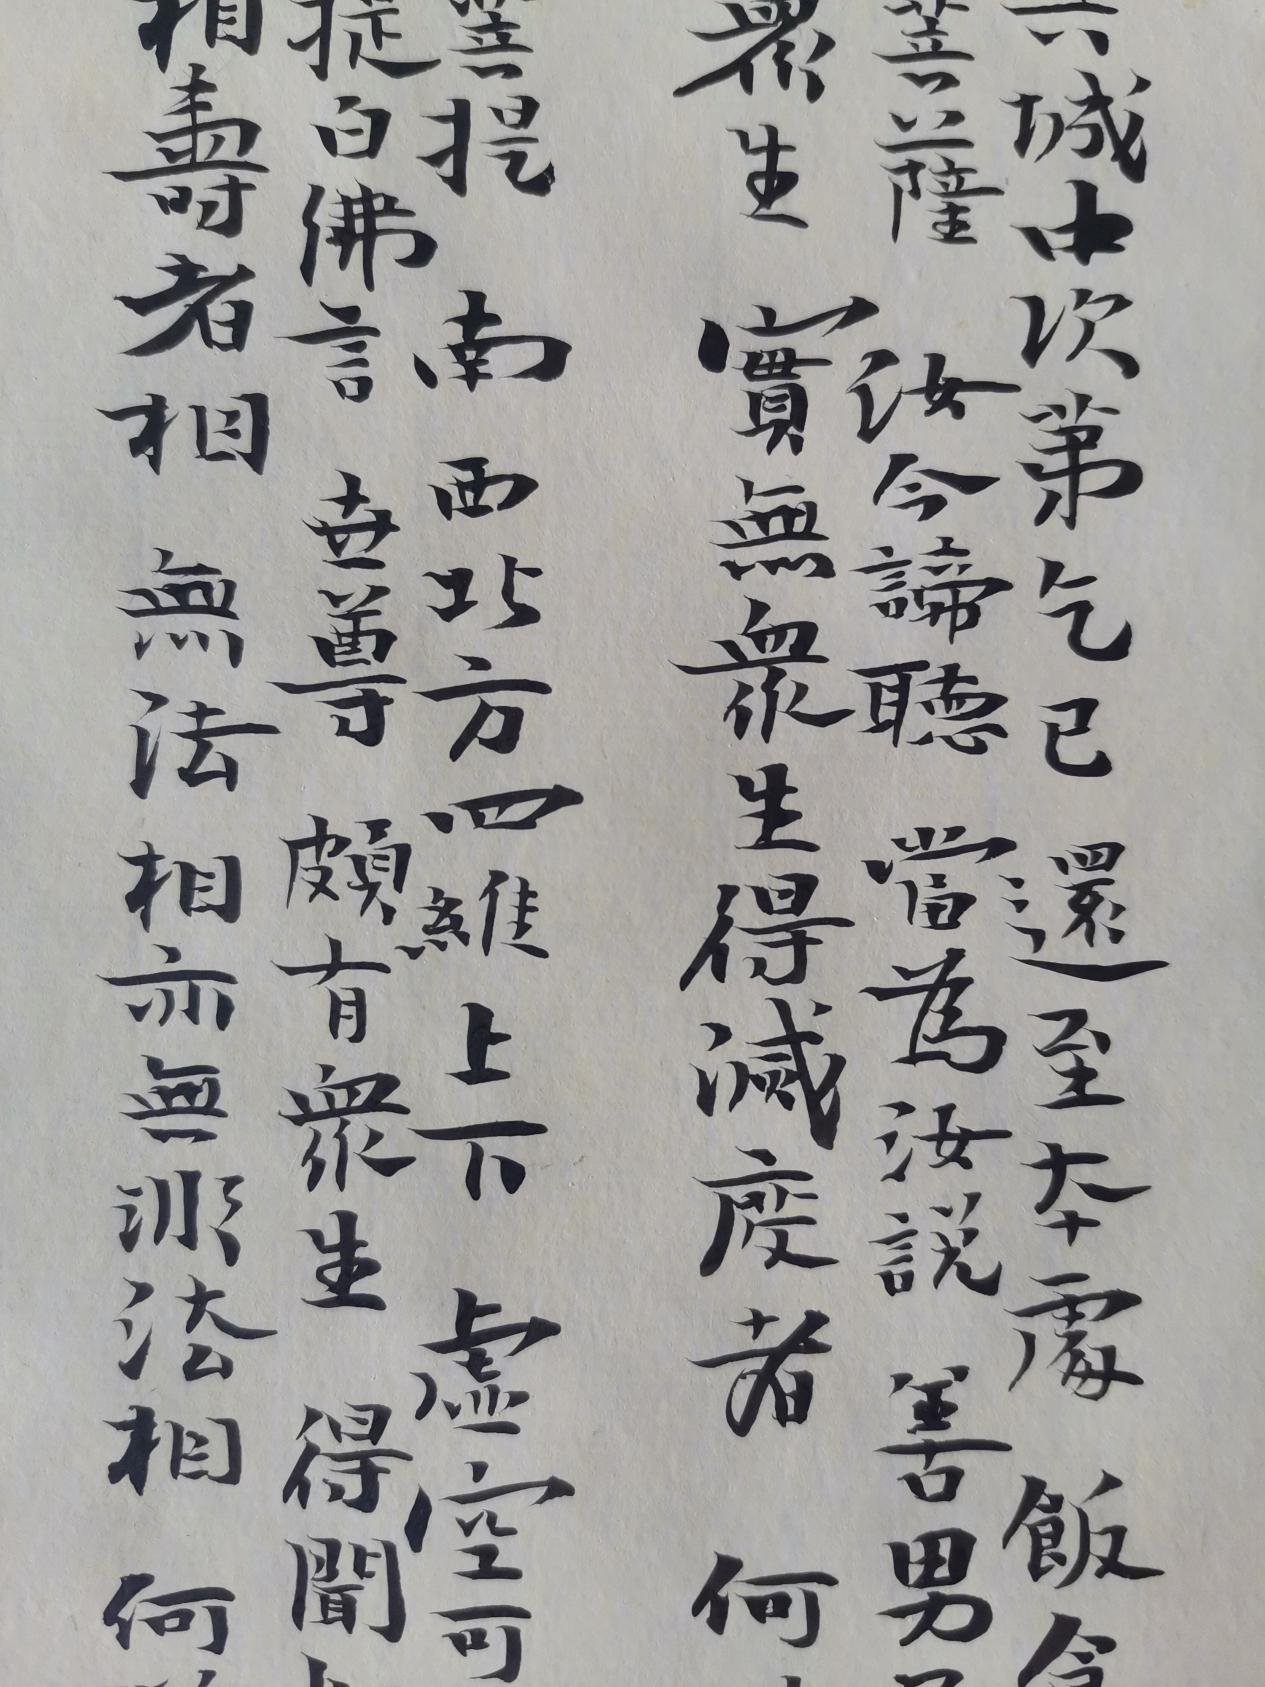 其城中次第乞已 還至本處 飯食
菩薩 汝今諦聽 當為汝説 善男
衆生 實無衆生得滅度者 何
菩提 南西北方四維上下 虚空可
提白佛言 世尊 頗有衆生 得聞
相壽者相 無法相亦無非法相 何